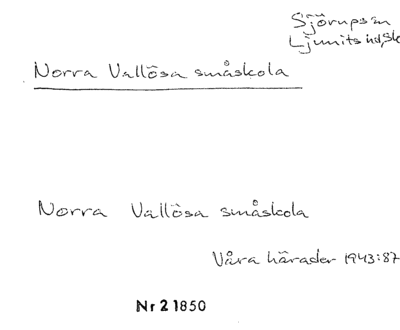 Sjörups sn
Ljunits hd, Sk
Norra Vallösa småskola
Norra Vallösa småskola
Våra härader 1943:87
Nr 21850